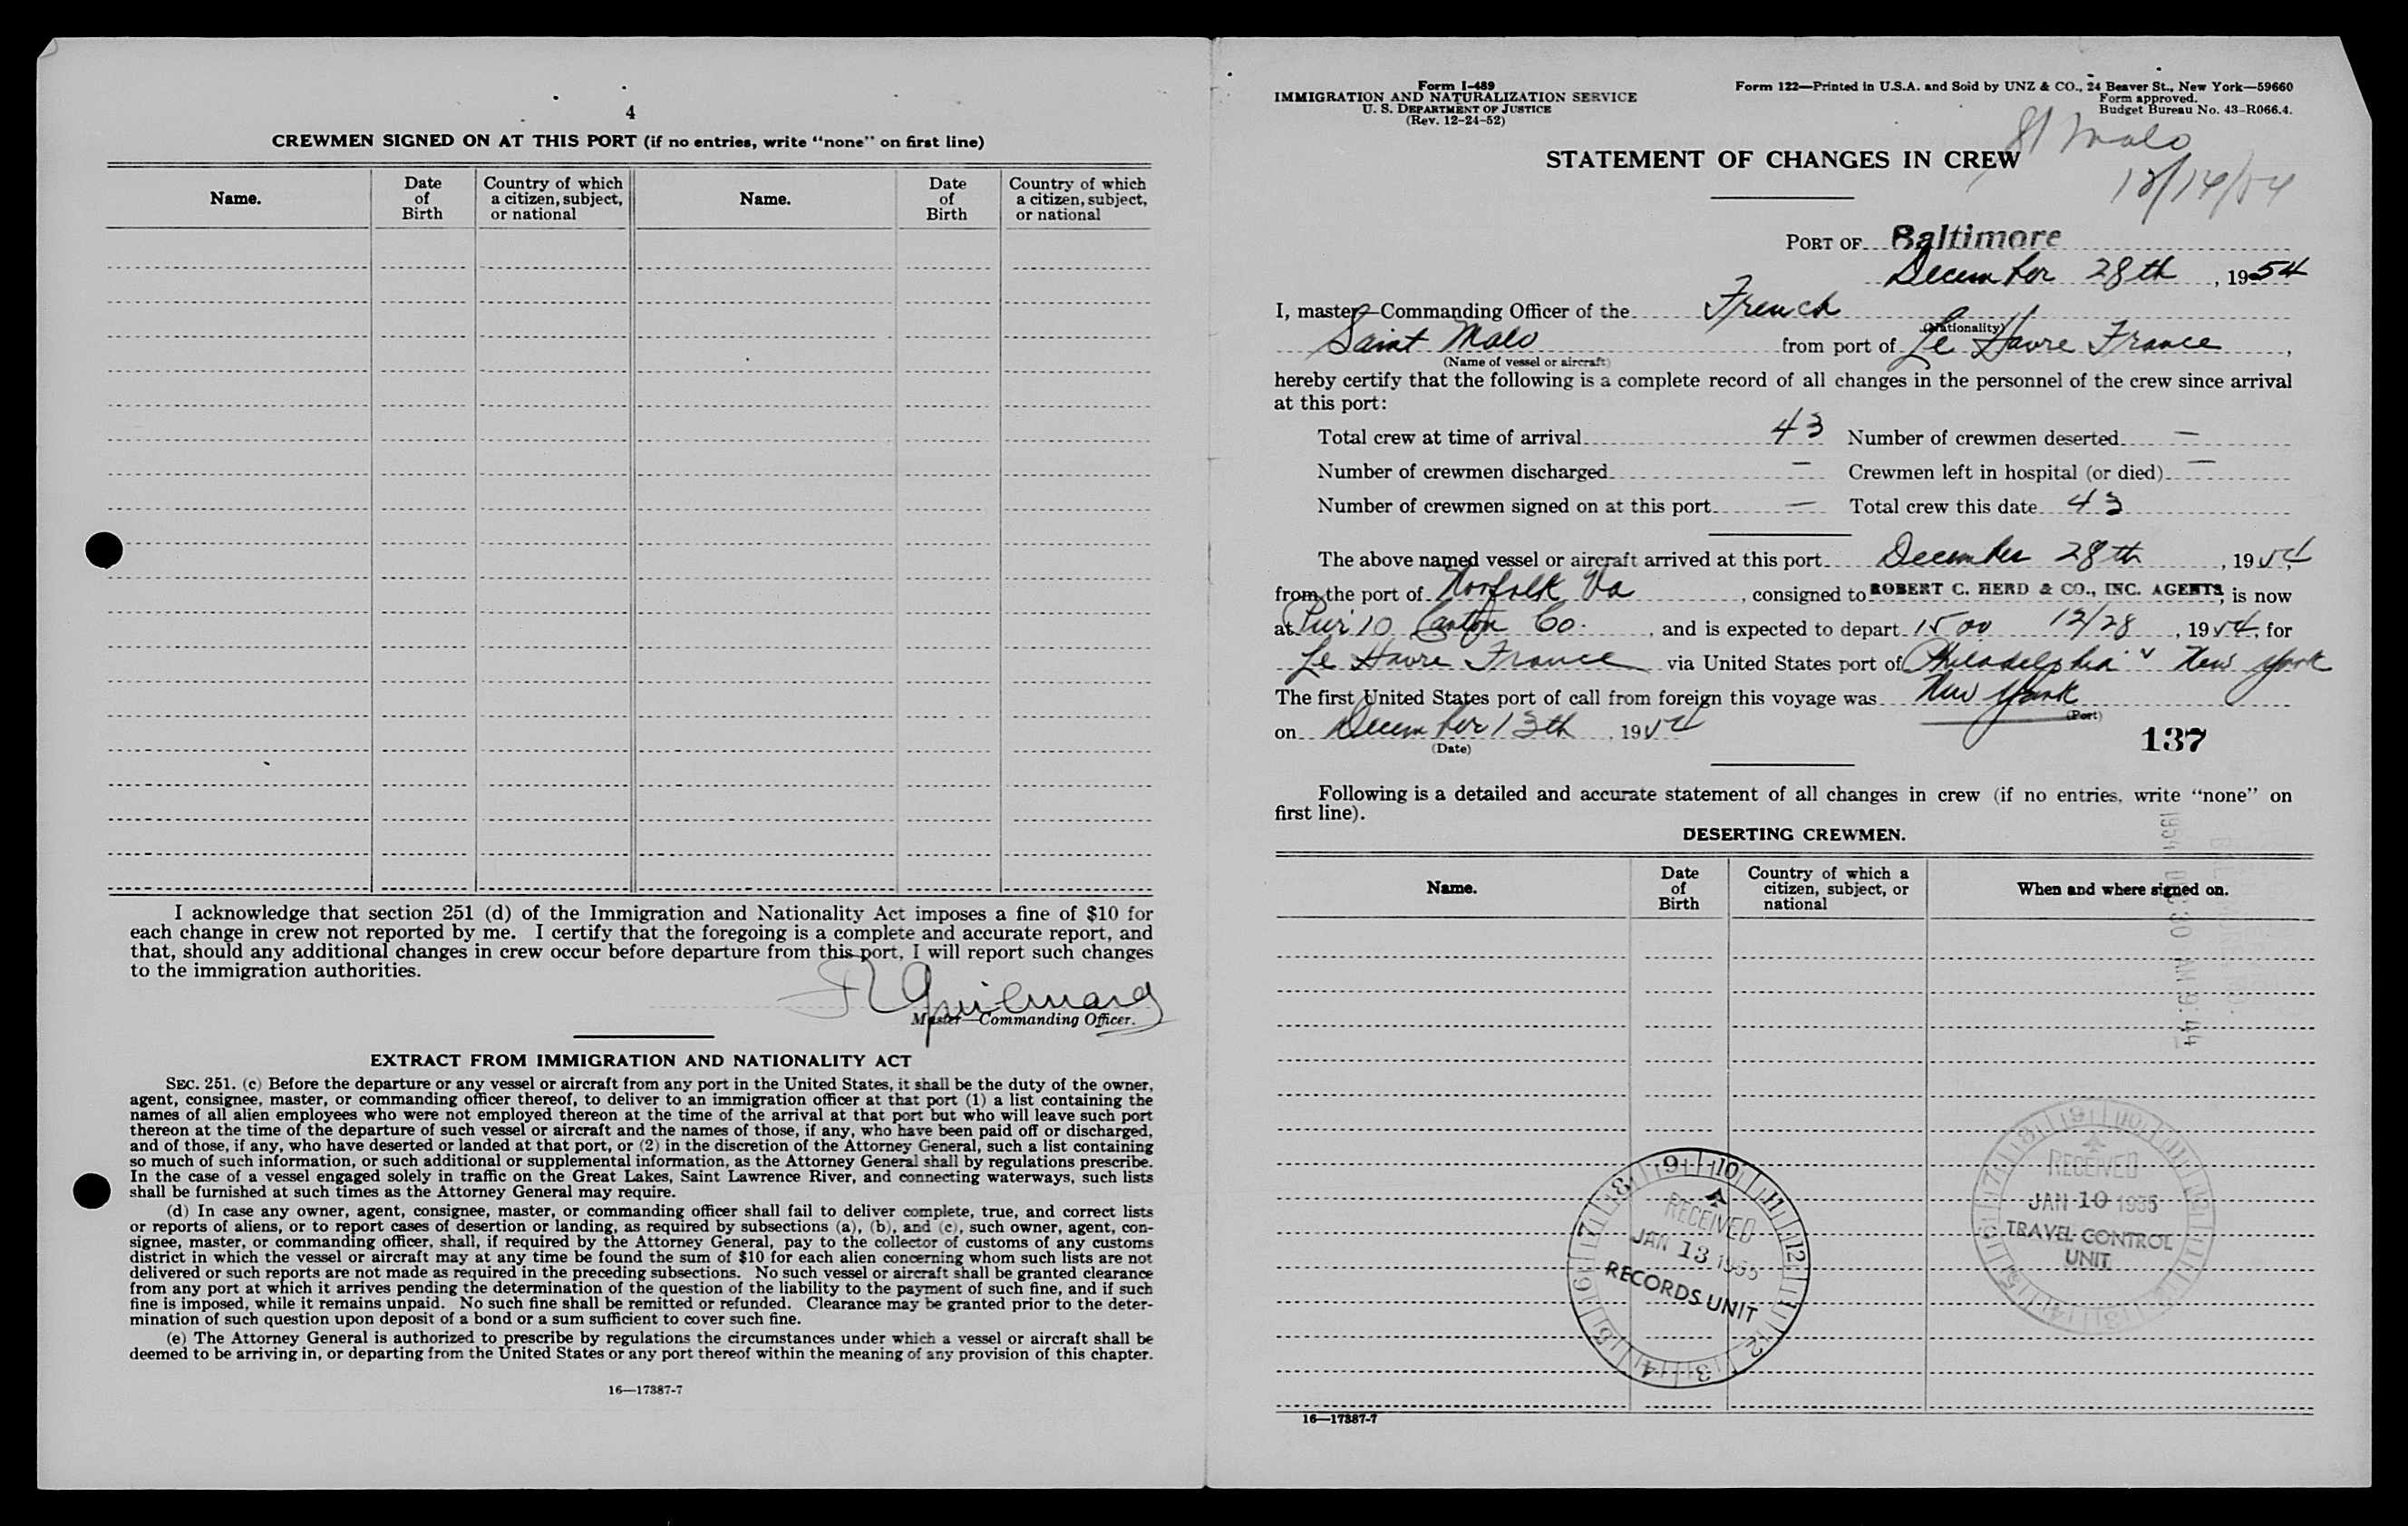 4
CREWMEN SIGNED ON AT THIS PORT (if no entries, write "none" on first line)
Name.
Date of Birth
Country of which a citizen, subject, or national
Name.
Date of Birth
Country of which a citizen, subject, or national
I acknowledge that section 251 (d) of the Immigration and Nationality Act imposes a fine of $10 for
each change in crew not reported by me. I certify that the foregoing is a complete and accurate report, and
that, should any additional changes in crew occur before departure from this port, I will report such changes
to the immigration authorities.
Master—Commanding Officer.
EXTRACT FROM IMMIGRATION AND NATIONALITY ACT
SEC. 251. (c) Before the departure or any vessel or aircraft from any port in the United States, it shall be the duty of the owner,
agent, consignee, master, or commanding officer thereof, to deliver to an immigration officer at that port (1) a list containing the
names of all alien employees who were not employed thereon at the time of the arrival at that port but who will leave such port
thereon at the time of the departure of such vessel or aircraft and the names of those, if any, who have been paid off or discharged,
and of those, if any, who have deserted or landed at that port, or (2) in the discretion of the Attorney General, such a list containing
so much of such information, or such additional or supplemental information, as the Attorney General shall by regulations prescribe.
In the case of a vessel engaged solely in traffic on the Great Lakes, Saint Lawrence River, and connecting waterways, such lists
shall be furnished at such times as the Attorney General may require.
(d) In case any owner, agent, consignee, master, or commanding officer shall fail to deliver complete, true, and correct lists
or reports of aliens, or to report cases of desertion or landing, as required by subsections (a), (b), and (c), such owner, agent, con-
signee, master, or commanding officer, shall, if required by the Attorney General, pay to the collector of customs of any customs
district in which the vessel or aircraft may at any time be found the sum of $10 for each alien concerning whom such lists are not
delivered or such reports are not made as required in the preceding subsections. No such vessel or aircraft shall be granted clearance
from any port at which it arrives pending the determination of the question of the liability to the payment of such fine, and if such
fine is imposed, while it remains unpaid. No such fine shall be remitted or refunded. Clearance may be granted prior to the deter-
mination of such question upon deposit of a bond or a sum sufficient to cover such fine.
(e) The Attorney General is authorized to prescribe by regulations the circumstances under which a vessel or aircraft shall be
deemed to be arriving in, or departing from the United States or any port thereof within the meaning of any provision of this chapter.
16—17387-7
Form I-489
IMMIGRATION AND NATURALIZATION SERVICE
U. S. DEPARTMENT OF JUSTICE
(Rev. 12-24-52)
Form 122—Printed in U.S.A. and Sold by UNZ & CO., 24 Beaver St., New York—59660
Form approved.
Budget Bureau No. 43-R066.4.
St Malo
STATEMENT OF CHANGES IN CREW
12/14/54
PORT OF Baltimore
December 28th, 1954
I, master—Commanding Officer of the French
(Nationality)
Saint Malo from port of Le Havre France,
(Name of vessel or aircraft)
hereby certify that the following is a complete record of all changes in the personnel of the crew since arrival
at this port:
Total crew at time of arrival 43 Number of crewmen deserted —
Number of crewmen discharged — Crewmen left in hospital (or died) —
Number of crewmen signed on at this port — Total crew this date 43
The above named vessel or aircraft arrived at this port December 28th, 1954,
from the port of Norfolk Va, consigned to ROBERT C. HERD & CO., INC. AGENTS, is now
at Pier 10 Canton Co., and is expected to depart 1500 12/28, 1954, for
Le Havre France via United States port of Philadelphia v New York
The first United States port of call from foreign this voyage was New York
(Port)
on December 13th, 1954
(Date)
137
Following is a detailed and accurate statement of all changes in crew (if no entries, write "none" on
first line).
DESERTING CREWMEN.
Name.
Date of Birth
Country of which a citizen, subject, or national
When and where signed on.
1954 DEC 30 AM 9:44
9 10 11 12 1 2 3 4 5 6 7 8
RECEIVED
JAN 13 1955
RECORDS UNIT
RECEIVED
JAN 10 1955
TRAVEL CONTROL
UNIT
16—17387-7